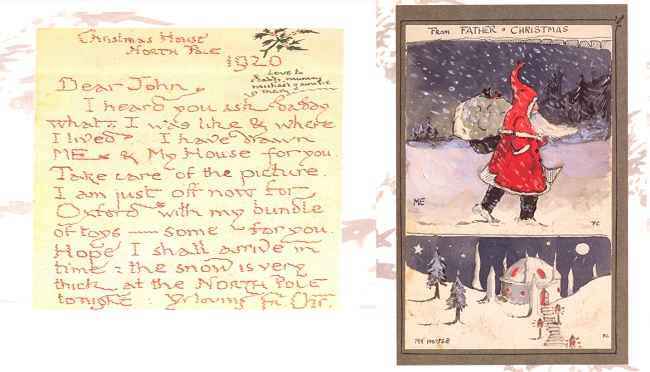 Christmas House
NORTH POLE
1920
Love to
daddy, mummy
michael & auntie
mary
Dear John,
I heard you ask daddy
what I was like & where
I lived. I have drawn
ME & My House for you.
Take care of the picture.
I am just off now for
Oxford with my bundle
of toys — some for you.
Hope I shall arrive in
time: the snow is very
thick at the NORTH POLE
tonight: Yr loving Fr. Chr.
FROM FATHER CHRISTMAS
ME
FC
MY HOUSE
FC